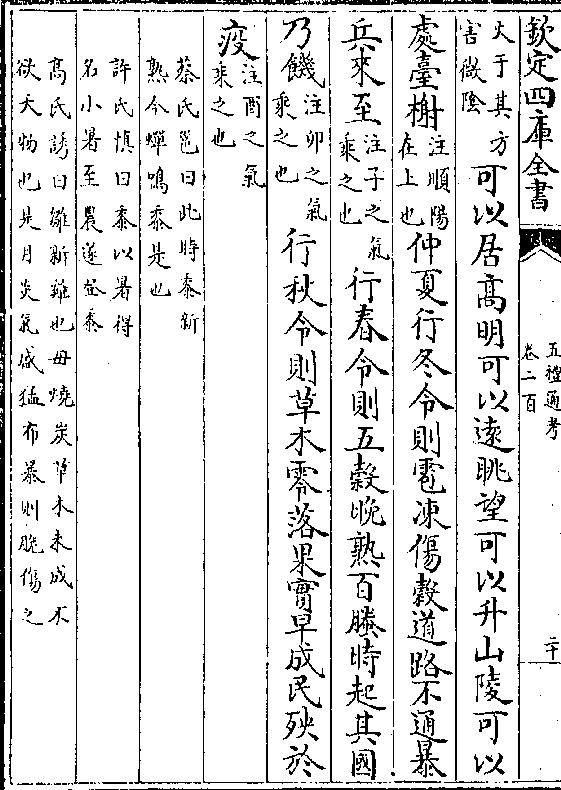 欽定四庫全書
五禮通考
卷二百
二十
火于其方
害微陰
可以居高明可以遠眺望可以升山陵可以
處臺榭
注順陽
在上也
仲夏行冬令則雹凍傷穀道路不通暴
兵來至
注子之氣
乘之也
行春令則五穀晚熟百螣時起其國
乃饑
注卯之氣
乘之也
行秋令則草木零落果實早成民殃於
疫
注酉之氣
乘之也
蔡氏邕曰此時黍新
熟今蟬鳴黍是也
許氏慎曰黍以暑得
名小暑至農遂登黍
高氏誘曰雛新雞也毋燒炭草木未成不
欲夭物也是月炎氣盛猛布暴則脆傷之